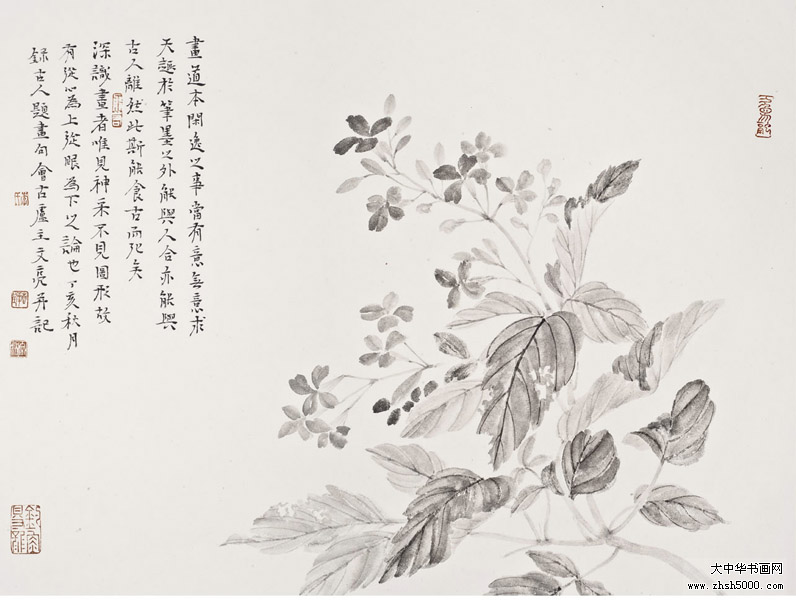 畫道本閑逸之事當有意無意求
天趣於筆墨之外能與人合亦能與
古人離然此斯能食古而化矣
深識畫者唯見神采不見圖形故
有從心為上從眼為下之論也丁亥秋月
錄古人題畫句會古廬主文亮并記
大中华书画网
www.zhsh5000.com